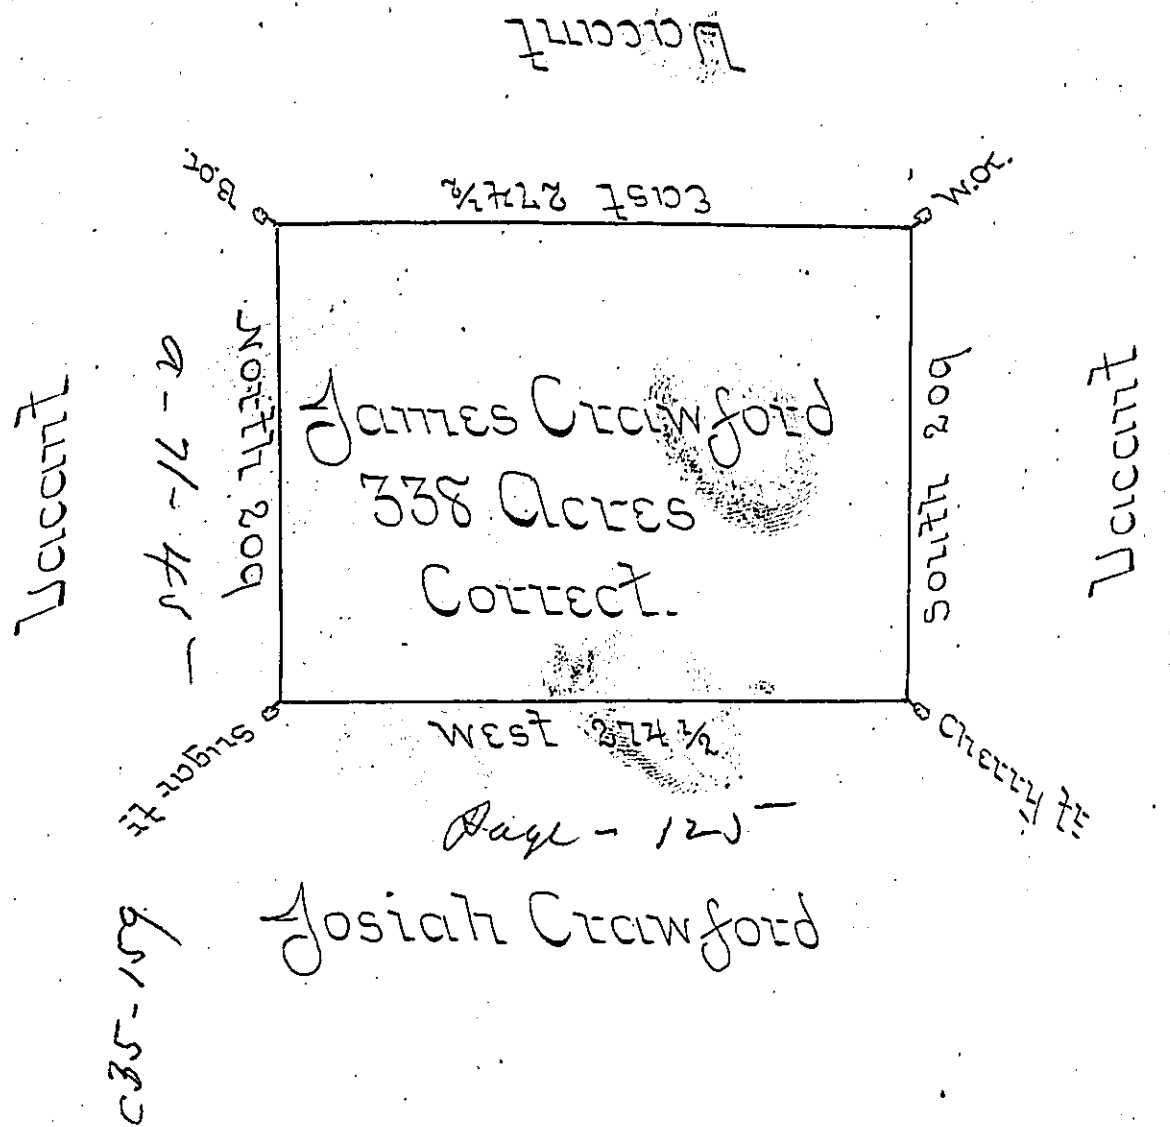 Vacant
B.or.
East 274½
W.or.
Vacant
North 209
James Crawford
338 Acres
Correct.
South 209
Vacant
West 274½
sugar tr
Cherry tr
Page - 125
Josiah Crawford
C35-159